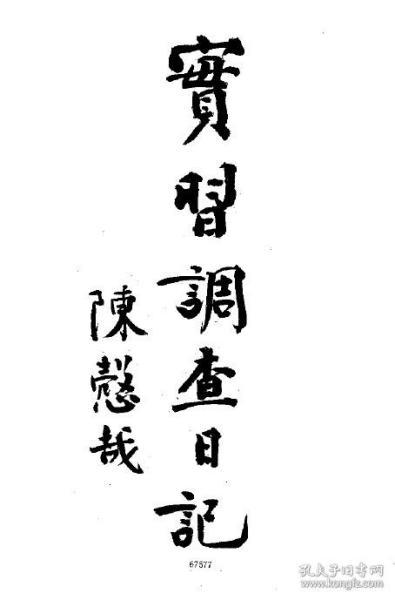 實習調查日記
陳慤哉
67577
孔夫子旧书网
www.kongfz.com